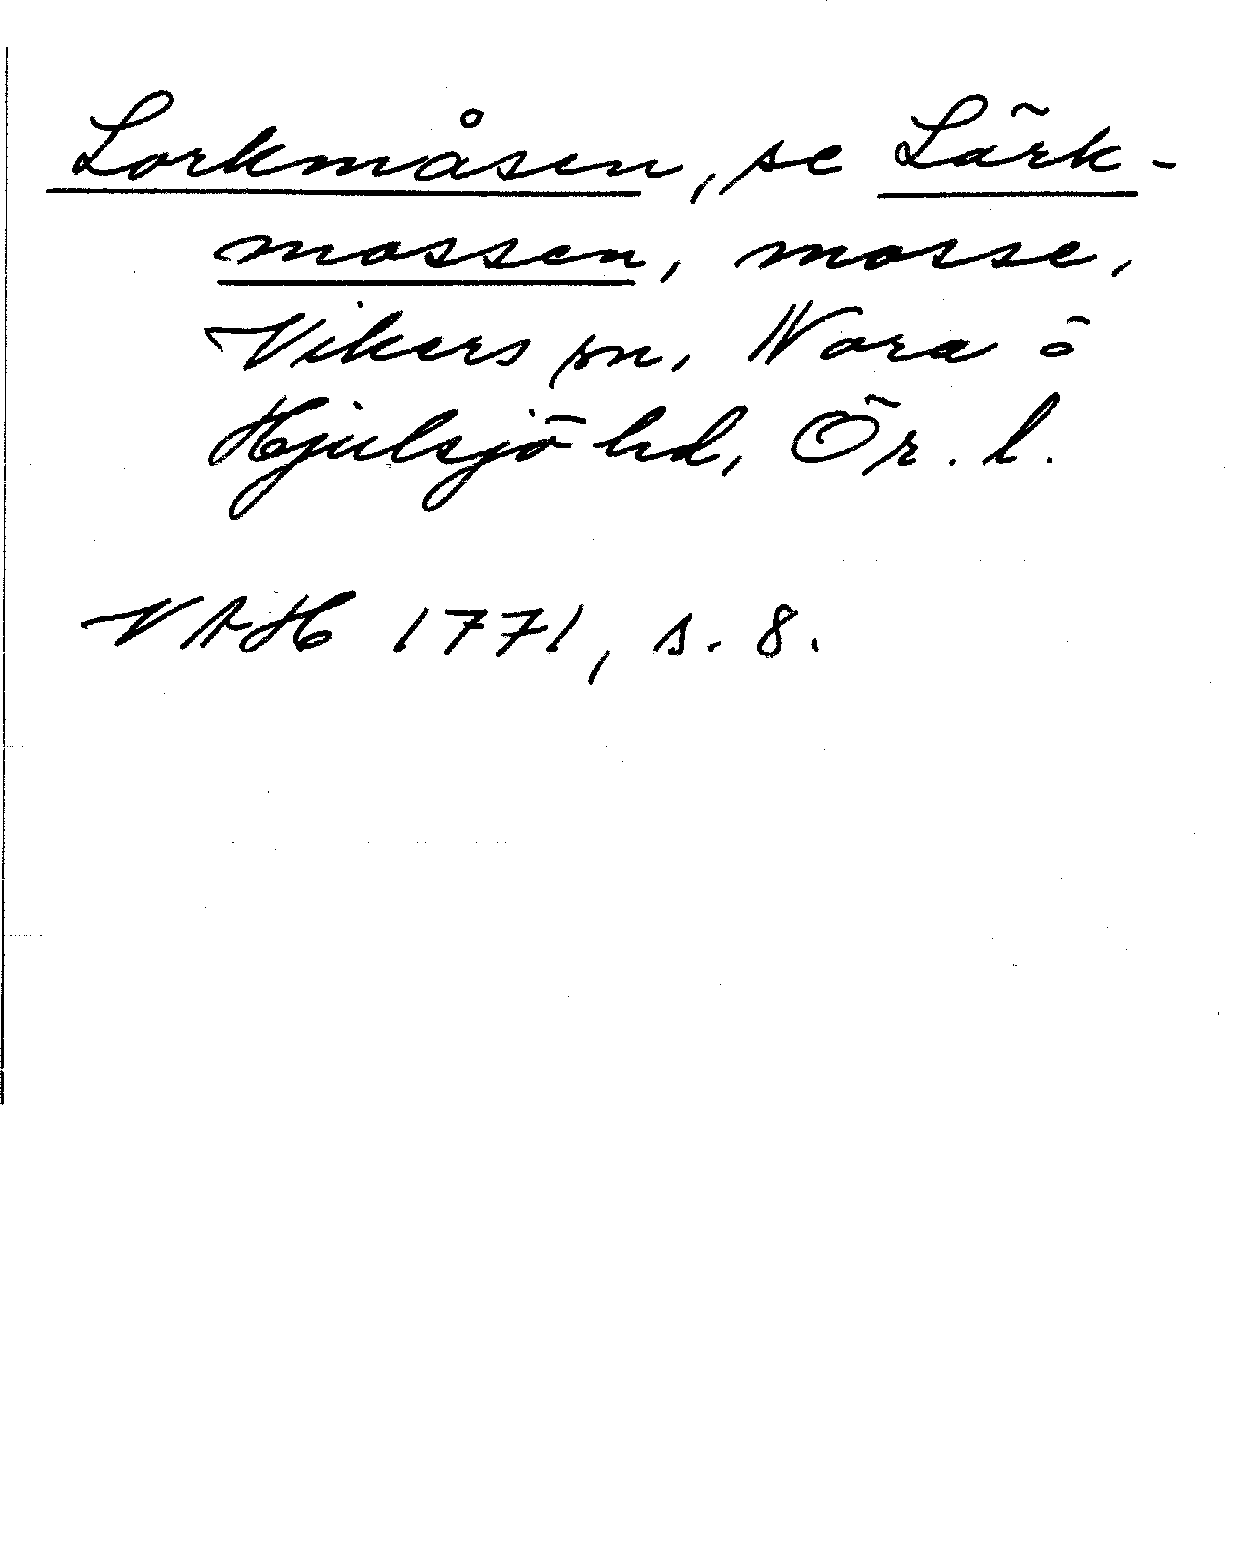 Lorkmåsen, se Lärk-
mossen, mosse,
Vikers sn, Nora ö
Hjulsjö hd, Ör. l.
VAH 1771, s. 8.